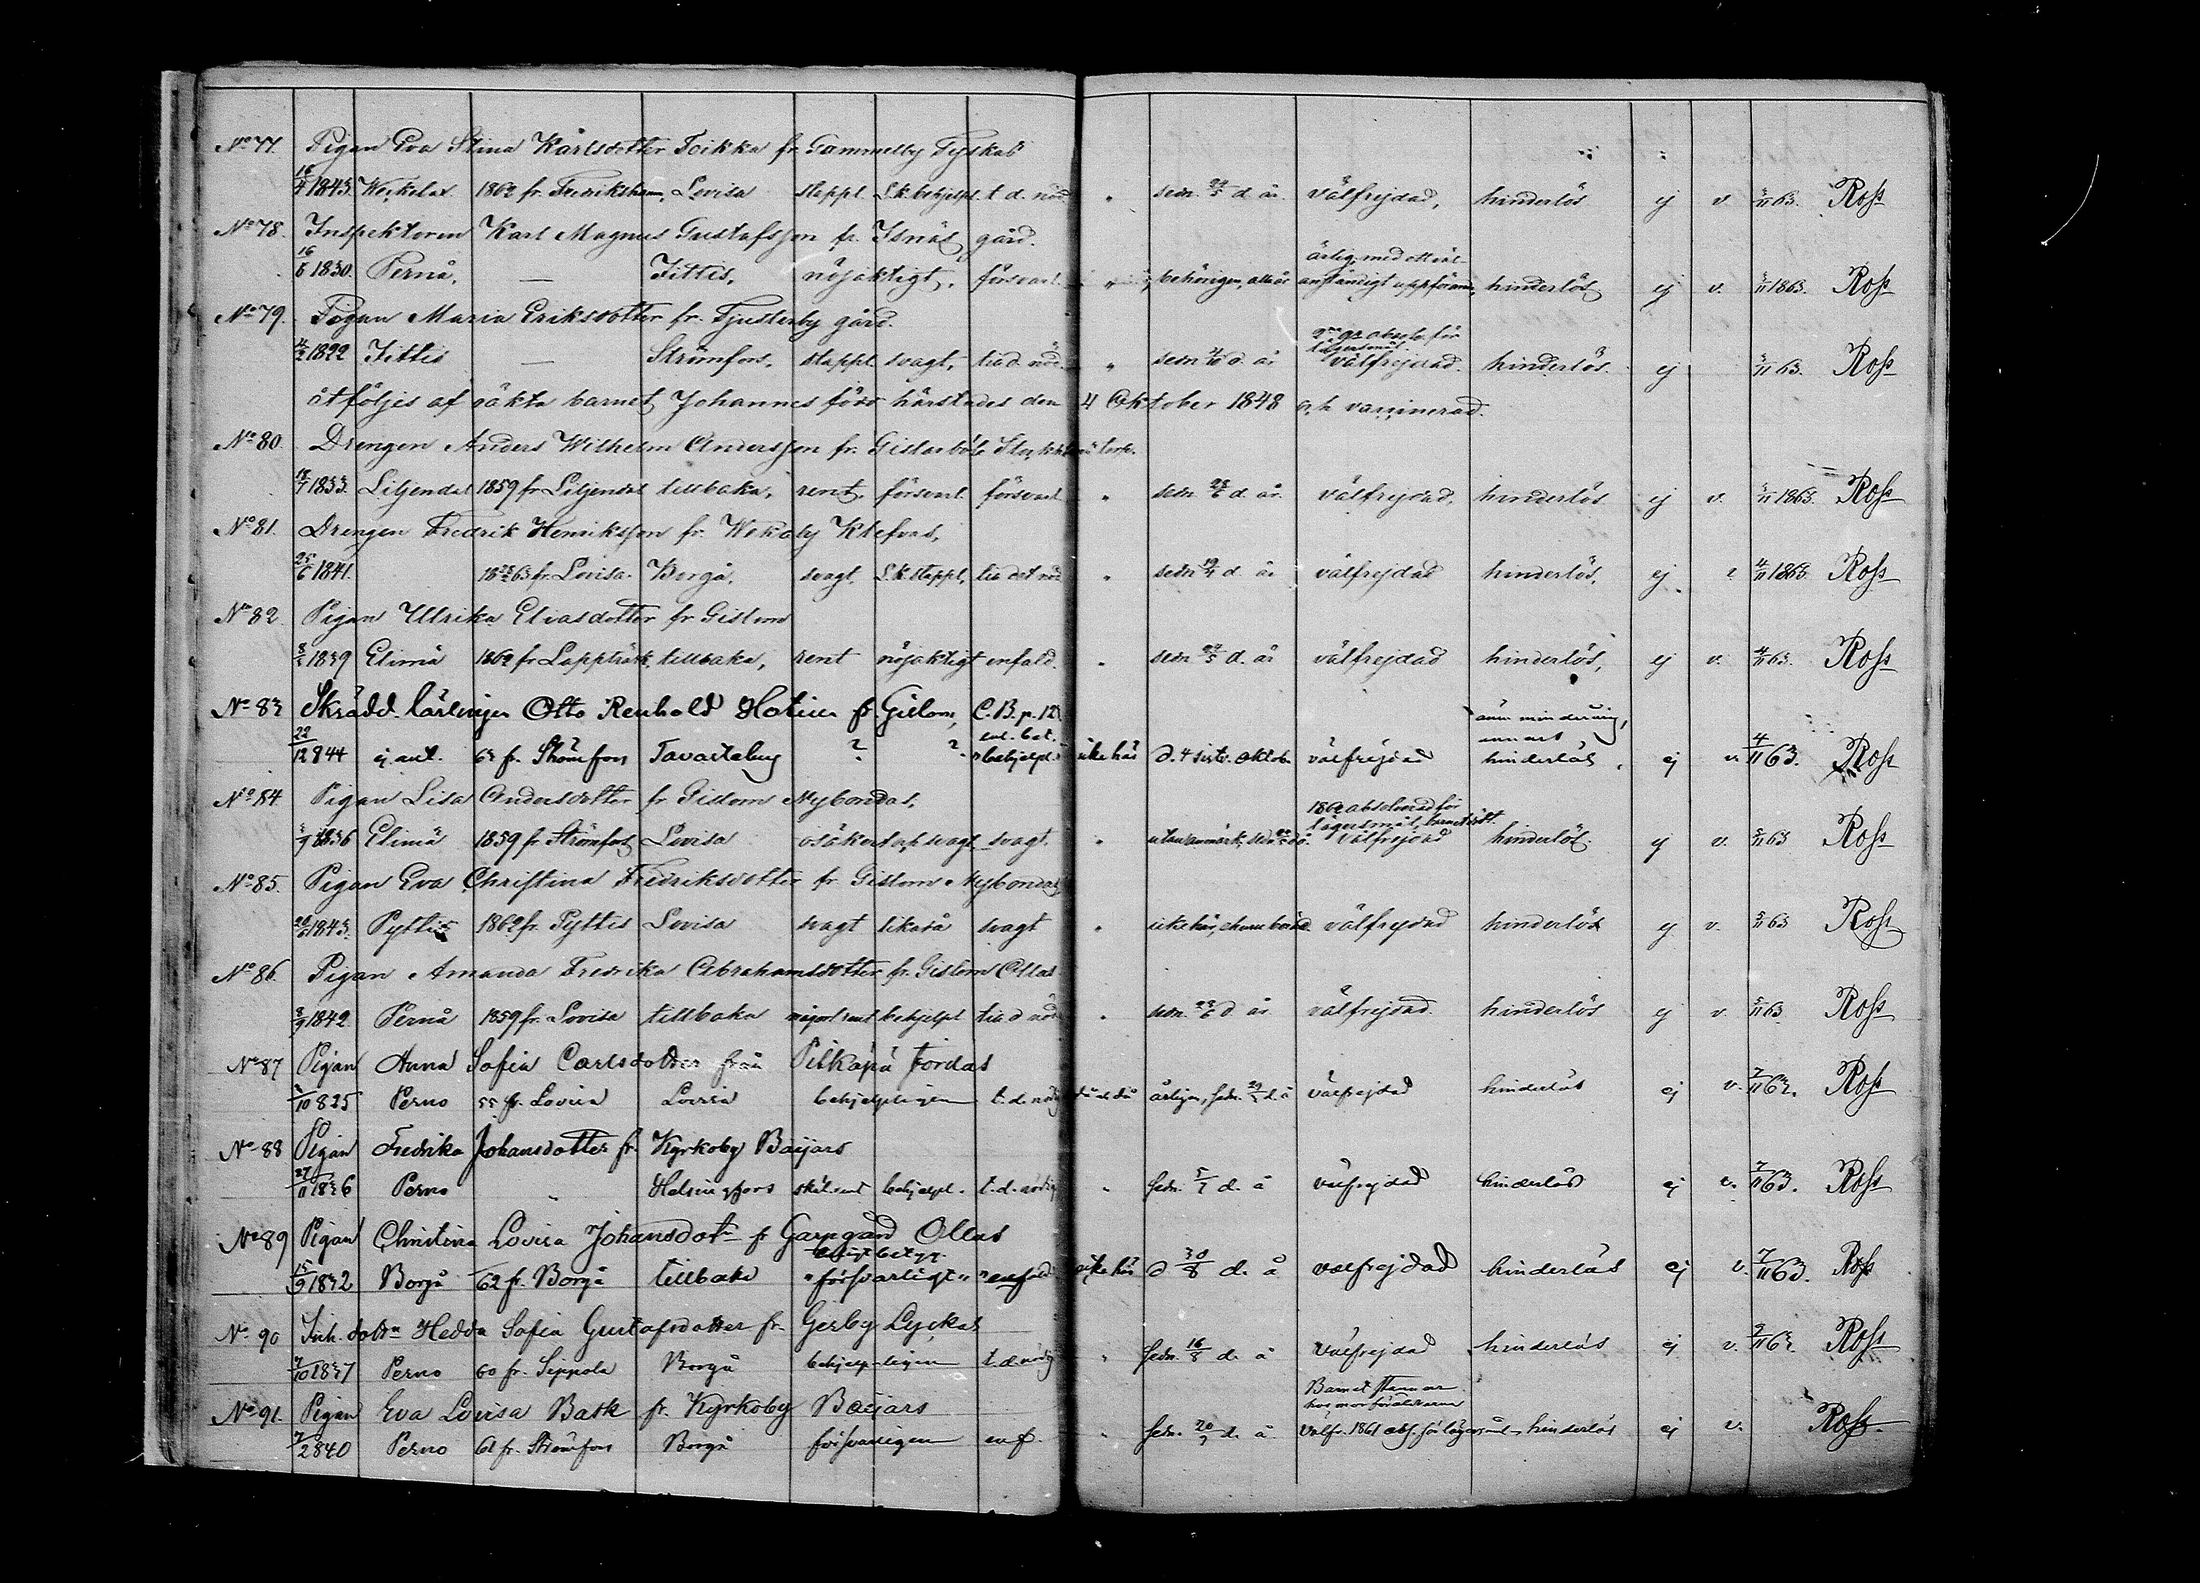 No 77. Pigan Eva Stina Karlsdotter Toikka fr Gammelby Tyskas
16/4 1843. Weckelax 1862 fr. Fredrikshamn, Lovisa stappl. S.k. behjelpl. t. d. nöd " sedn. 24/5 d. år. välfrejdad, hinderlös ej v. 3/11 63. Ross
No 78. Inspektoren Karl Magnus Gustafsson fr. Isnäs gård.
ärlig, med ett väl-
16/8 1830. Pernå, — Jittis, nöjaktigt, försvarl. " behörigen, alla år anständigt uppförande, hinderlös ej v. 3/11 1863. Ross
No 79. Pigan Maria Eriksdotter fr. Tjusterby gård.
2ne gr absolv. för
lägersmål.
4/2 1822 Jittis — Strömfors, stappl. svagt, t. d. nöd. " sedn d. år välfrejdad. hinderlös. ej 3/11 63. Ross
åtföljes af oäkta barnet Johannes född härstädes den 4 Oktober 1848 och vaccinerad.
No 80. Drengen Anders Wilhelm Andersson fr. Gislarböle torp.
18/7 1833. Liljendal 1859 fr Liljendal tillbaka, rent, försvarl. försvarl. " sedn 28/6 d. år. välfrejdad, hinderlös ej v. 3/11 1863. Ross
No 81. Drengen Fredrik Henriksson fr. Wekoby Klefvas,
25/6 1841. 18 63 fr. Lovisa. Borgå, svagt, S.k. stappl, t. det nöd " sedn 19/4 d. år välfrejdad hinderlös, ej. v. 4/11 1863. Ross
No 82. Pigan Ullrika Eliasdotter fr Gislom
8/2 1839 Elimä 1862 fr Lappträsk, tillbaka, rent nöjaktigt enfald. " sedn. 24/5 d. år välfrejdad hinderlös, ej v. 4/11 63. Ross
No 83 Skrädd. lärlingen Otto Renhold Hotinen fr. Gislom, C.B. p. 12
enl. bet. ännu minderårig, annars
22/12 844 ej ant. 63 fr. Strömfors Tavasteburg ? ? "behjelpl." icke här d. 4 sistl. Oktober välfrejdad hinderlös, ej v. 4/11 63. Ross
No 84. Pigan Lisa Andersdotter fr Gislom Nybondas,
1862 absolverad för
lägersmål, barnet dött.
3/9 1836 Elimä 1859 fr Strömfors Lovisa osäkert och svagt svagt. " utan anmärk. sedn d. å. välfrejdad hinderlös. ej v. 5/11 63 Ross
No 85. Pigan Eva Christina Fredriksdotter fr Gislom Nybondas
20/6 1843. Pyttis 1862 fr. Pyttis Lovisa svagt likaså svagt " icke här, ehuru välfrejdad hinderlös ej v. 5/11 63 Ross
No 86. Pigan Amanda Fredrika Abrahamsdotter fr. Gislom Ollas
8/9 1842. Pernå 1859 fr. Lovisa tillbaka något rent behjelpl. t. d. nöd. " sedn. 28/6 d. år. välfrejdad. hinderlös ej v. 5/11 63 Ross
No 87 Pigan Anna Sofia Carlsdotter från Pitkäpä Jordas
/10 825 Perno 55 fr. Lovisa Lovisa behjelpligen t. d. nödig då o. då årligen, sedn. d. å välfrejdad hinderlös ej v. 7/11 63. Ross
No 88 Pigan Fredrika Johansdotter fr Kyrkoby Baijars
27/11 1836 Perno " Helsingfors behjelpl. t. d. nödig " sedn. 5/7 d. å välfrejdad hinderlös ej v. 7/11 63. Ross
No 89 Pigan Christina Lovisa Johansdotr fr Garpgård Ollas
enligt betyg.
15/9 1832 Borgå 62 fr. Borgå tillbaka "försvarligt" "enfald" icke här d 30/8 d. å välfrejdad hinderlös ej v. 7/11 63. Ross
No 90 Inh. dotrn Hedda Sofia Gustafsdotter fr. Gerby Lyckas
7/10 1837 Perno 60 fr. Seppola Borgå behjelpligen t. d. nödig " sedn. 16/8 d. å välfrejdad hinderlös ej v. 9/11 63. Ross
Barnet stannar
hos morföräldrarne
No 91. Pigan Eva Lovisa Bask fr. Kyrkoby Baijars
7/2 840 Perno 61 fr. Strömfors Borgå försvarligen enf. " sedn. d. å. Välfr. 1861 abs. för lägersmål. hinderlös ej v. Ross.